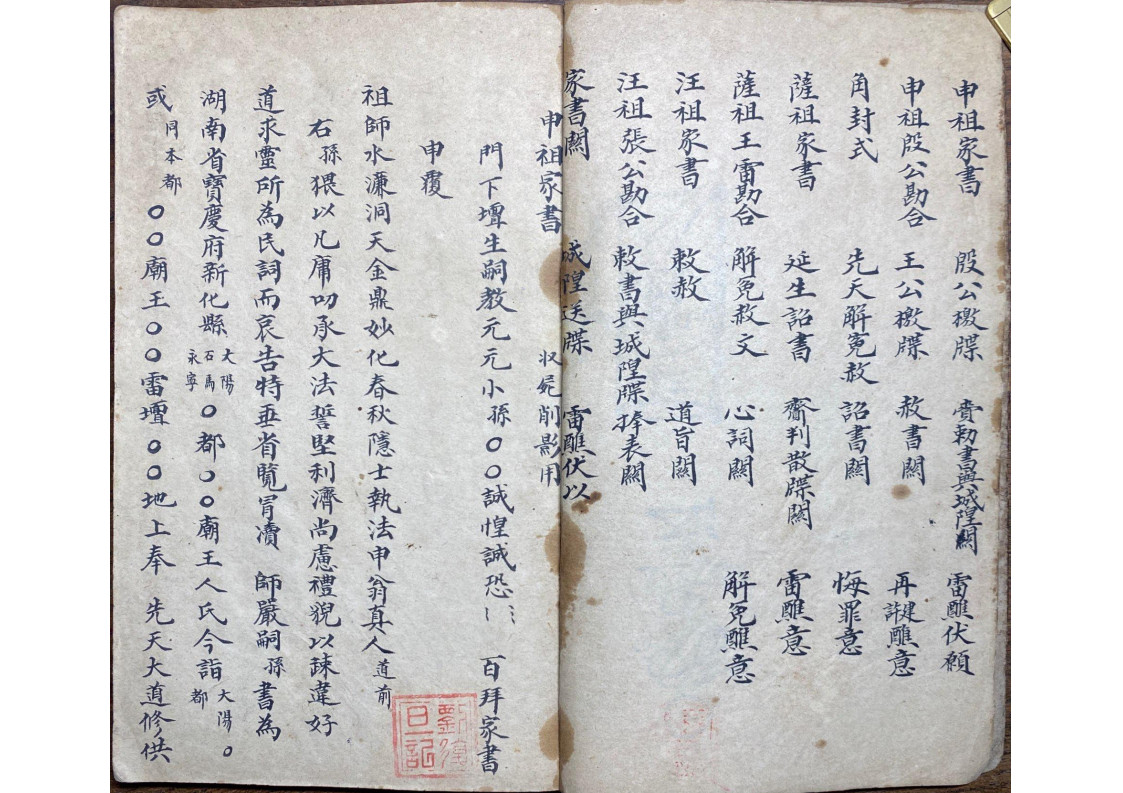 申祖家書 殷公檄牒 賫勅書與城隍關 雷醮伏願
申祖殷公勘合 王公檄牒 赦書關 再謝醮意
角封式 先天解冤赦 詔書關 悔罪意
薩祖家書 延生詔書 齋判散牒關 雷醮意
薩祖王雷勘合 解冤赦文 心詞關 解冤醮意
汪祖家書 敕赦 道旨關
汪祖張公勘合 敕書與城隍牒 捧表關
家書關 城隍送牒 雷醮伏以
申祖家書 收屍削影用
門下壇生嗣教元元小孫〇〇誠惶誠恐 百拜家書
申覆
祖師水濂洞天金鼎妙化春秋隱士執法申翁真人 道前
右孫猥以凡庸叨承大法誓堅利濟尚慮禮貌以踈違好
道求靈所為民詞而哀告特垂省覽冐凟 師嚴嗣孫書為
湖南省寶慶府新化縣 大陽 石馬 永寧 〇都〇〇廟王人氏今詣 大陽〇都
或同本都〇〇廟王〇〇雷壇〇〇地上奉 先天大道修供